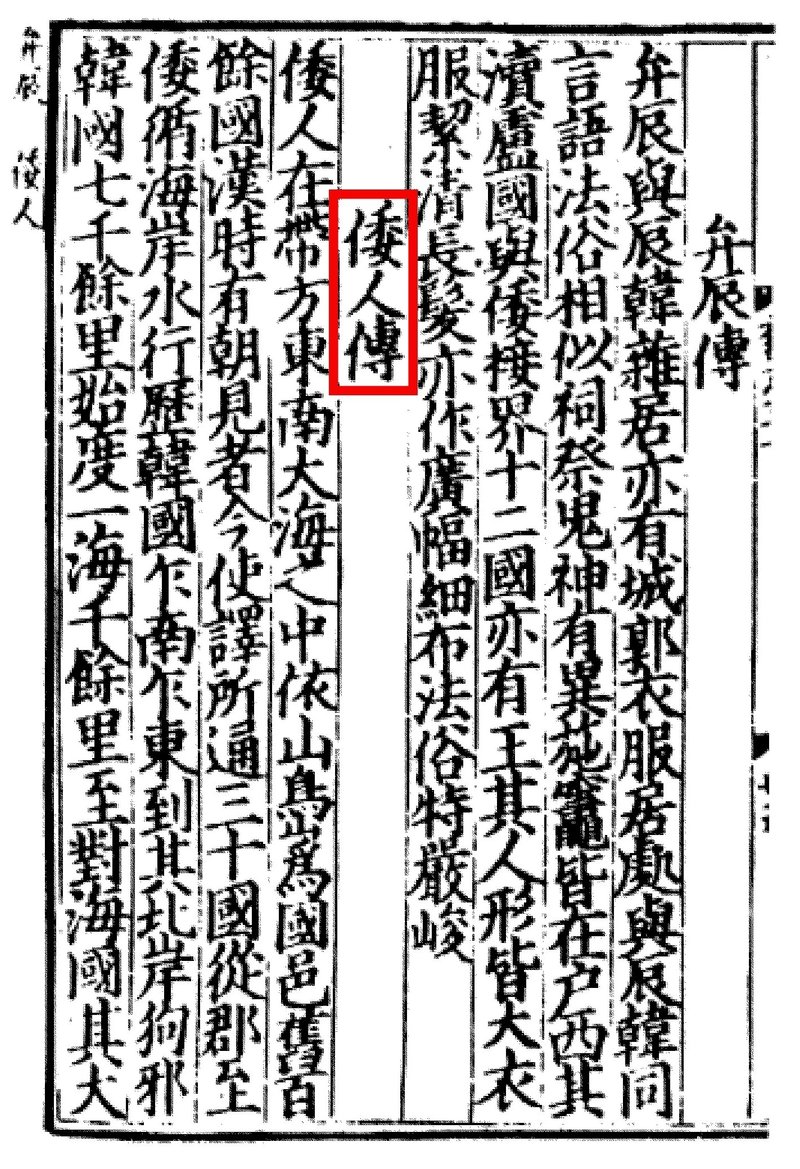 弁辰傳
弁辰與辰韓雜居亦有城郭衣服居處與辰韓同
言語法俗相似祠祭鬼神有異施竈皆在户西其
瀆盧國與倭接界十二國亦有王其人形皆大衣
服絜清長髮亦作廣幅細布法俗特嚴峻
倭人傳
倭人在帶方東南大海之中依山島爲國邑舊百
餘國漢時有朝見者今使譯所通三十國從郡至
倭循海岸水行歷韓國乍南乍東到其北岸狗邪
韓國七千餘里始度一海千餘里至對海國其大
弁辰 倭人